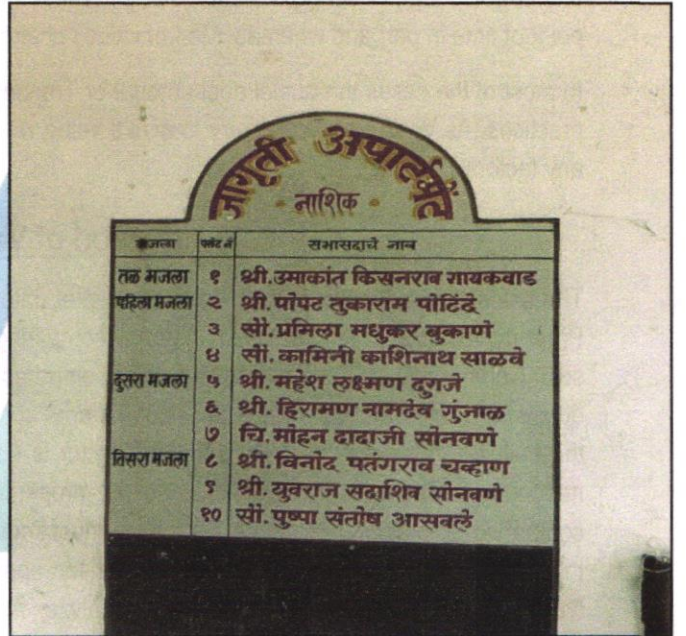 जागृती अपार्टमेंट
नाशिक
मजला फ्लॅट नं सभासदाचे नाव
तळ मजला १ श्री. उमाकांत किसनराव गायकवाड
पहिला मजला २ श्री. पोपट तुकाराम पोटिंदे
३ सौ. प्रमिला मधुकर बुकाणे
४ सौ. कामिनी काशिनाथ साळवे
दुसरा मजला ५ श्री. महेश लक्ष्मण दुगजे
६ श्री. हिरामण नामदेव गुंजाळ
७ चि. मोहन दादाजी सोनवणे
तिसरा मजला ८ श्री. विनोद पतंगराव चव्हाण
९ श्री. युवराज सदाशिव सोनवणे
१० सौ. पुष्पा संतोष आसवले